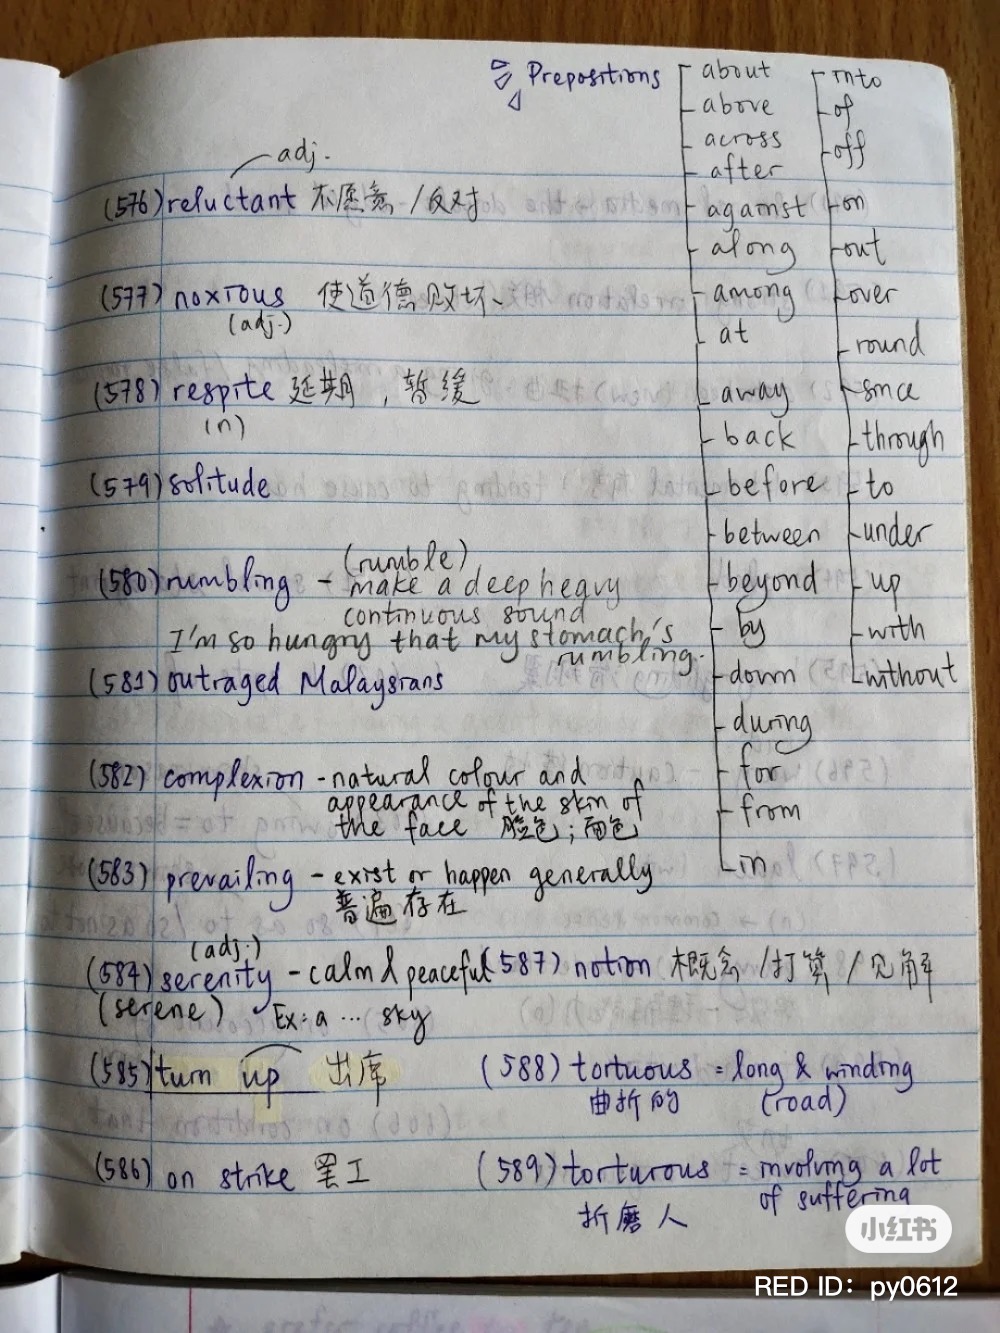 Prepositions
about
above
across
after
against
along
among
at
away
back
before
between
beyond
by
down
during
for
from
in
into
of
off
on
out
over
round
since
through
to
under
up
with
without
adj.
(576) reluctant 不愿意 / 反对
(577) noxious 使道德败坏、
(adj.)
(578) respite 延期，暂缓
(n)
(579) solitude
(580) rumbling - (rumble)
make a deep heavy
continuous sound
I'm so hungry that my stomach's
rumbling.
(581) outraged Malaysians
(582) complexion - natural colour and
appearance of the skin of
the face 脸色；面色
(583) prevailing - exist or happen generally
普遍存在
(adj.)
(584) serenity - calm & peaceful
(serene) Ex: a ... sky
(585) turn up 出席
(586) on strike 罢工
(587) notion 概念 / 打算 / 见解
(588) tortuous = long & winding
曲折的 (road)
(589) torturous = involving a lot
of suffering
折磨人
小红书
RED ID：py0612